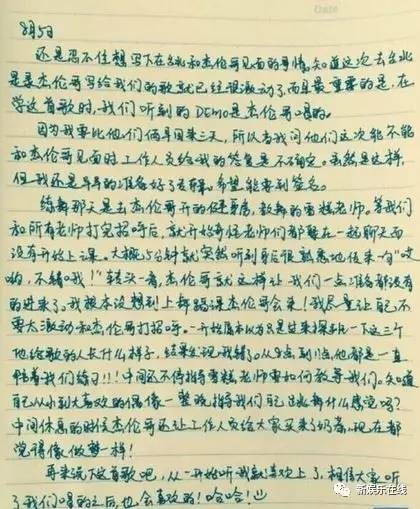 Date
8月5日
还是忍不住想写下在台北和杰伦哥见面的事情。知道这次去台北
是录杰伦哥写给我们的歌就已经很激动了而且最重要的是,在
学这首歌时,我们听到的DEMO是杰伦哥唱的。
因为我要比他们俩早回来三天,所以当我问他们这次能不能
和杰伦哥见面时工作人员给我的答复是不确定。虽然是这样,
但我还是早早的准备好了专辑,希望能要到签名。
练舞那天是去杰伦哥开的健身房,教舞的雪糕老师。等我们
和所有老师打完招呼后,就开始奇怪老师们都聚在一起聊天而
没有开始上课。大概5分钟就突然听到背后很熟悉地传来一句"哎
哟,不错哦!"转头一看,杰伦哥就这样让我们一点准备都没有
的进来了。我根本没想到上舞蹈课杰伦哥会来!我尽量让自己不
要太激动和杰伦哥打招呼。一开始原本以为只是过来探班一下这三个
他给歌的人长什么样子,结果发现我错了。从9点到11点,他都是一直
陪着我们练习!!!中间还不停指导雪糕老师要如何教导我们。知道
自己从小到大喜欢的偶像一整晚指导我们自己跳舞什么感觉吗?
中间休息的时候杰伦哥还让工作人员给大家买来奶茶,现在都
觉得像做梦一样!
再来说下这首歌吧,从一开始听我就喜欢上了,相信大家听
了我们唱的之后,也会喜欢的!哈哈!
新娱乐在线